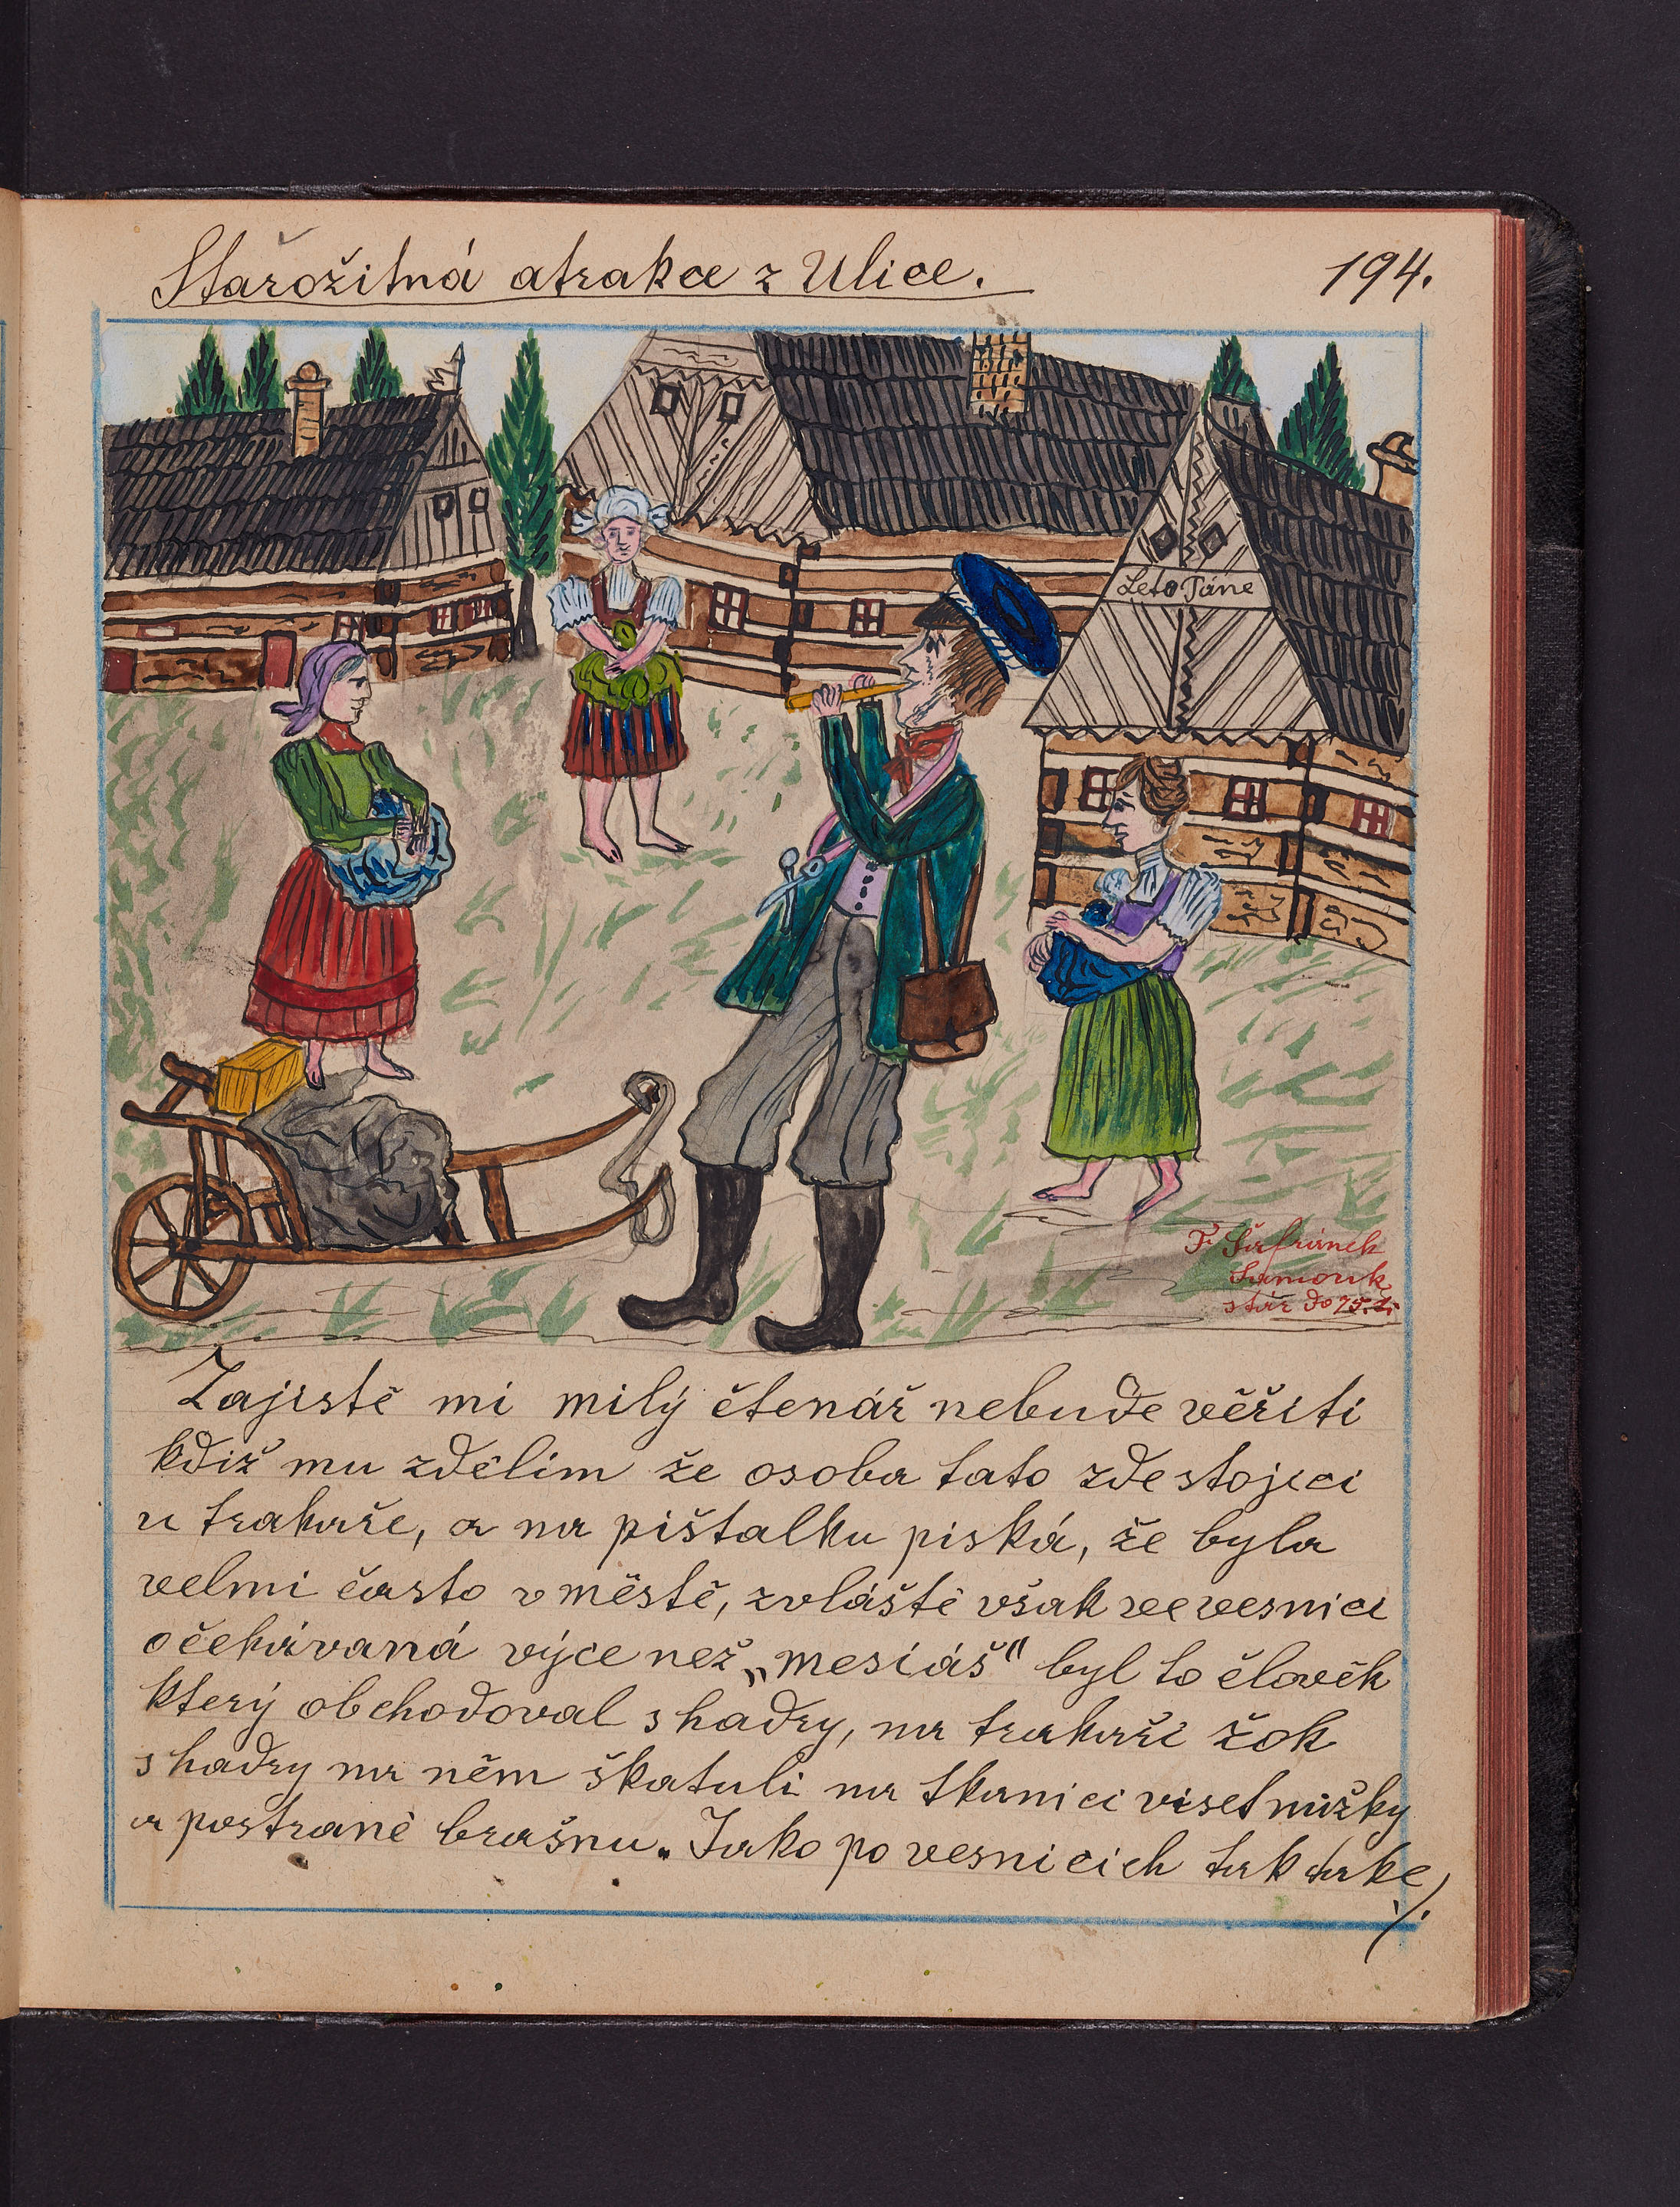 Starožitná atrakce z Ulice.
194.
Leto Páne
F. Šafránek
Samouk
stár do 75.l.
Zajistě mi milý čtenář nebude věřiti
kdiž mu zdělim že osoba tato zde stojici
u trakaře, a na pištalku piská, že byla
velmi často v městě, zvláště však ve vesnici
očekávaná výce než „mesiáš" byl to člověk
který obchodoval s hadry, na trakaři žok
s hadry na něm škatuli na tkanici viset nůžky
a postraně brašnu. Jako po vesnicich tak take
./.